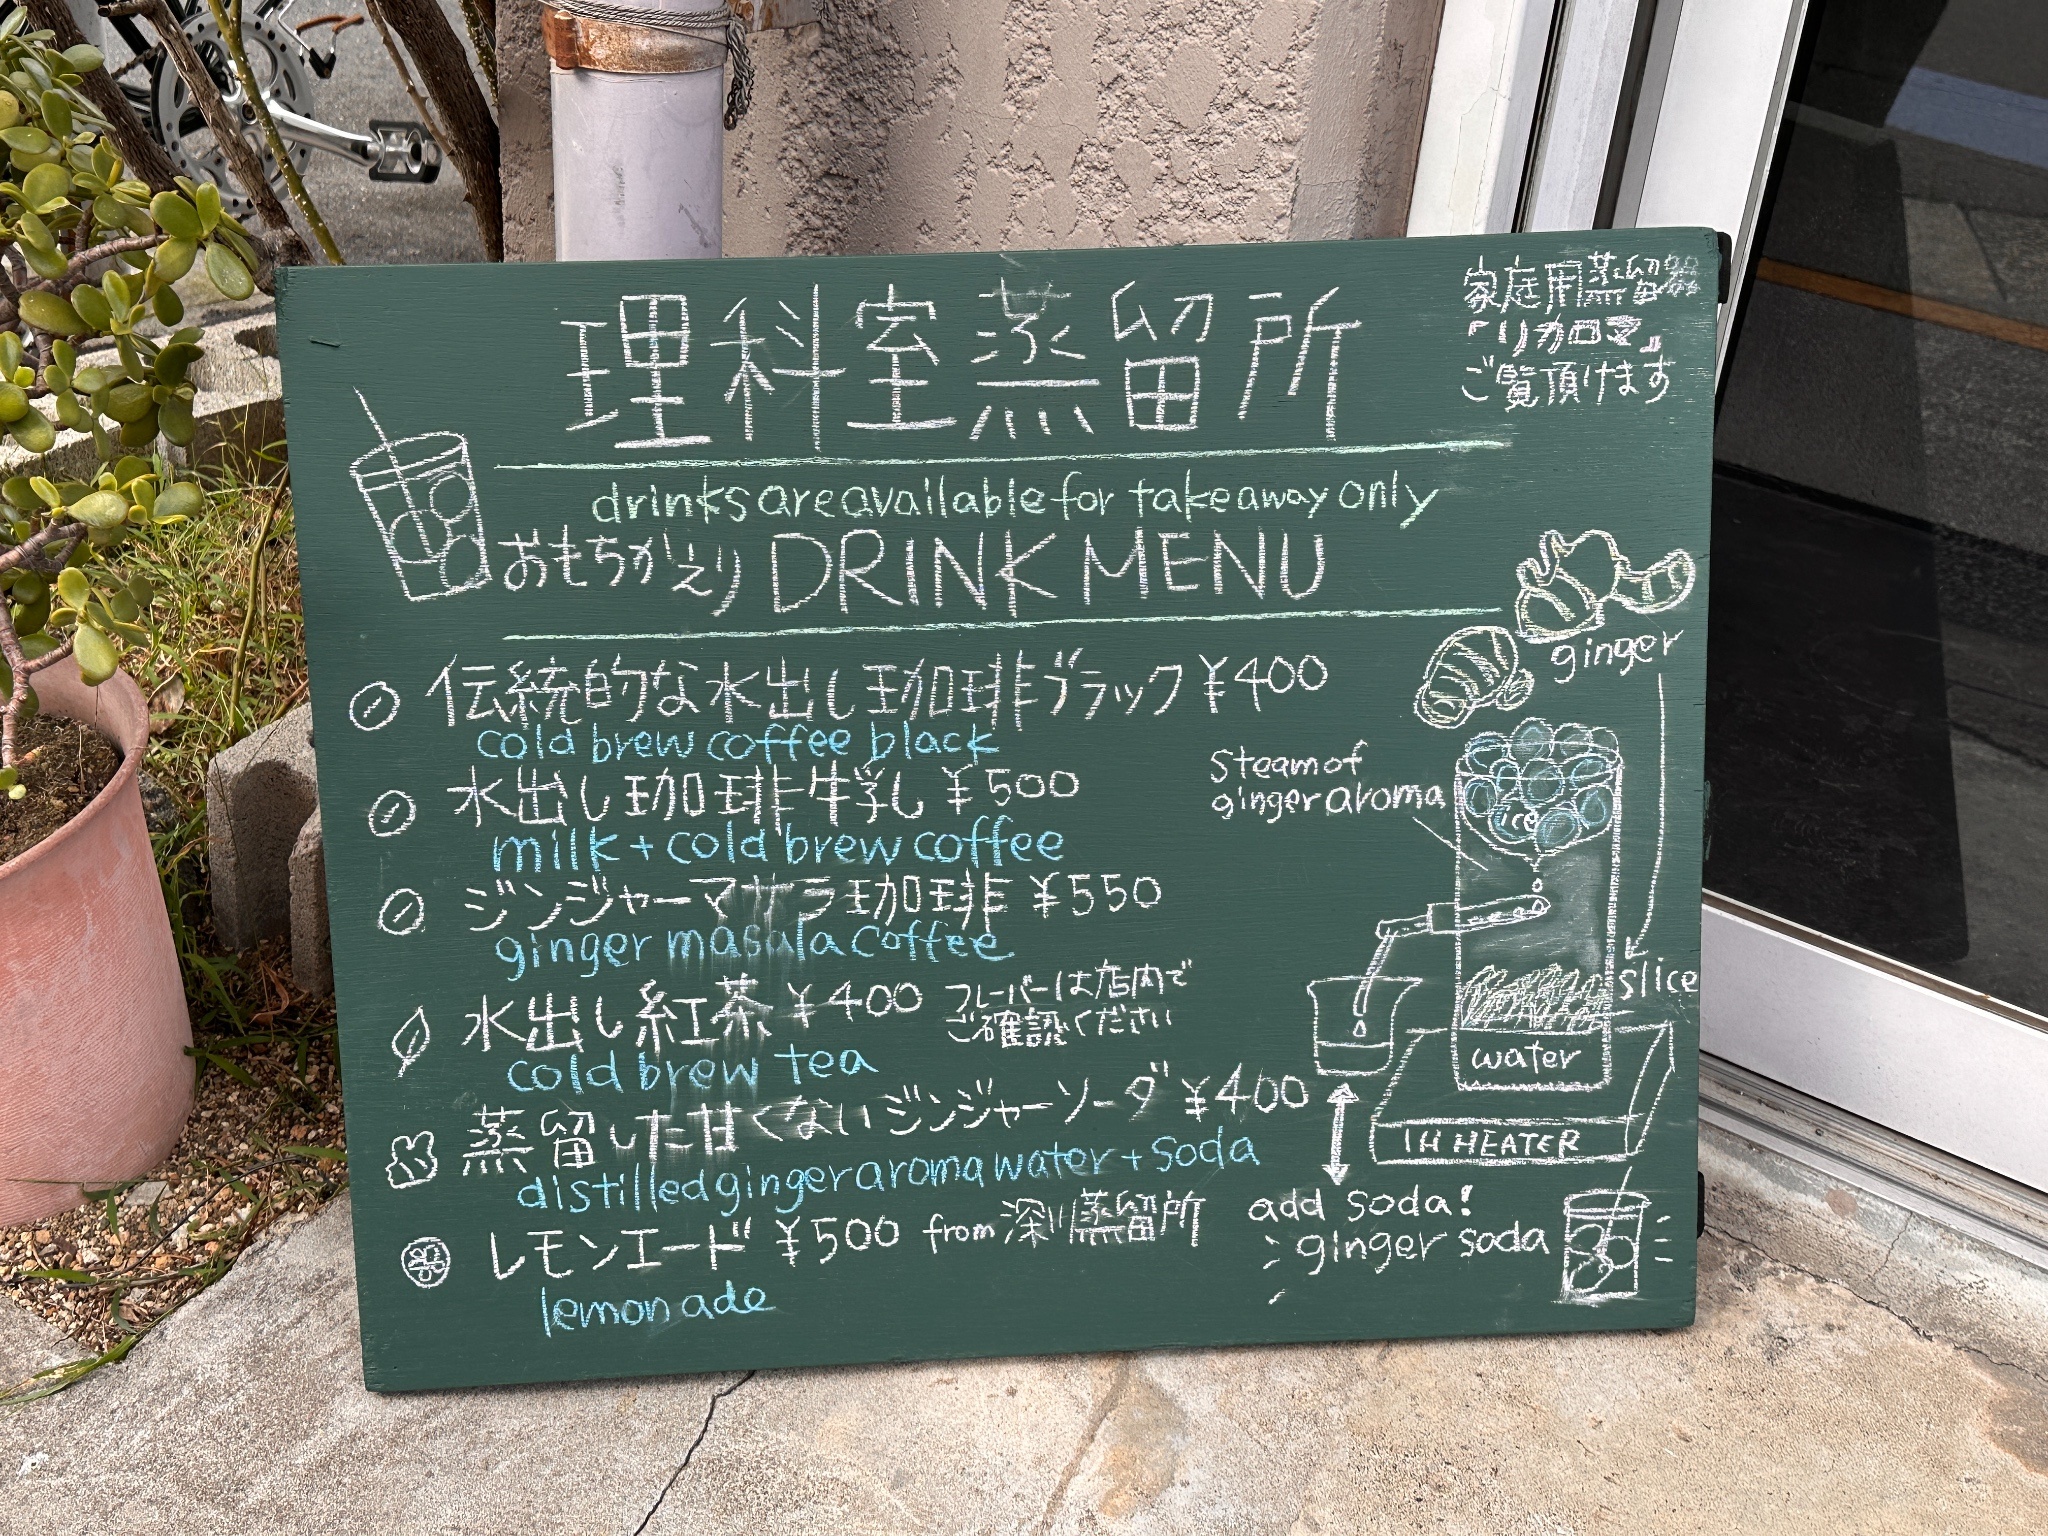 理科室蒸留所
家庭用蒸留器
「リカロマ」
ご覧頂けます
drinks are available for take away only
おもちがえり DRINK MENU
伝統的な水出し珈琲ブラック ¥400
cold brew coffee black
水出し珈琲牛乳し ¥500
milk + cold brew coffee
ジンジャーマサラ珈琲 ¥550
ginger masala coffee
水出し紅茶 ¥400 フレーバーは店内で
ご確認ください
cold brew tea
蒸留した甘くないジンジャーソーダ ¥400
distilled ginger aroma water + soda
レモンエード ¥500 from 深川蒸留所
lemonade
ginger
Steam of
ginger aroma
ice
slice
water
IH HEATER
add soda!
ginger soda